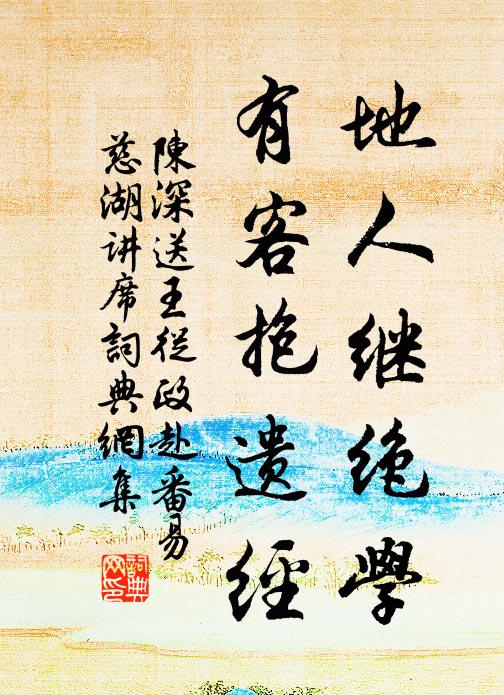 地人继绝學
有客抱遗經
陳深送王從政赴番易
慈湖讲席詞典網集
詞典网印